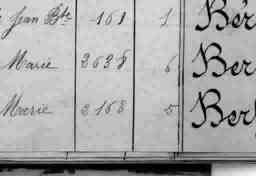 Jean Bte 161 1 Bér
Marie 2638 6 Ber
Marie 2168 5 Ber